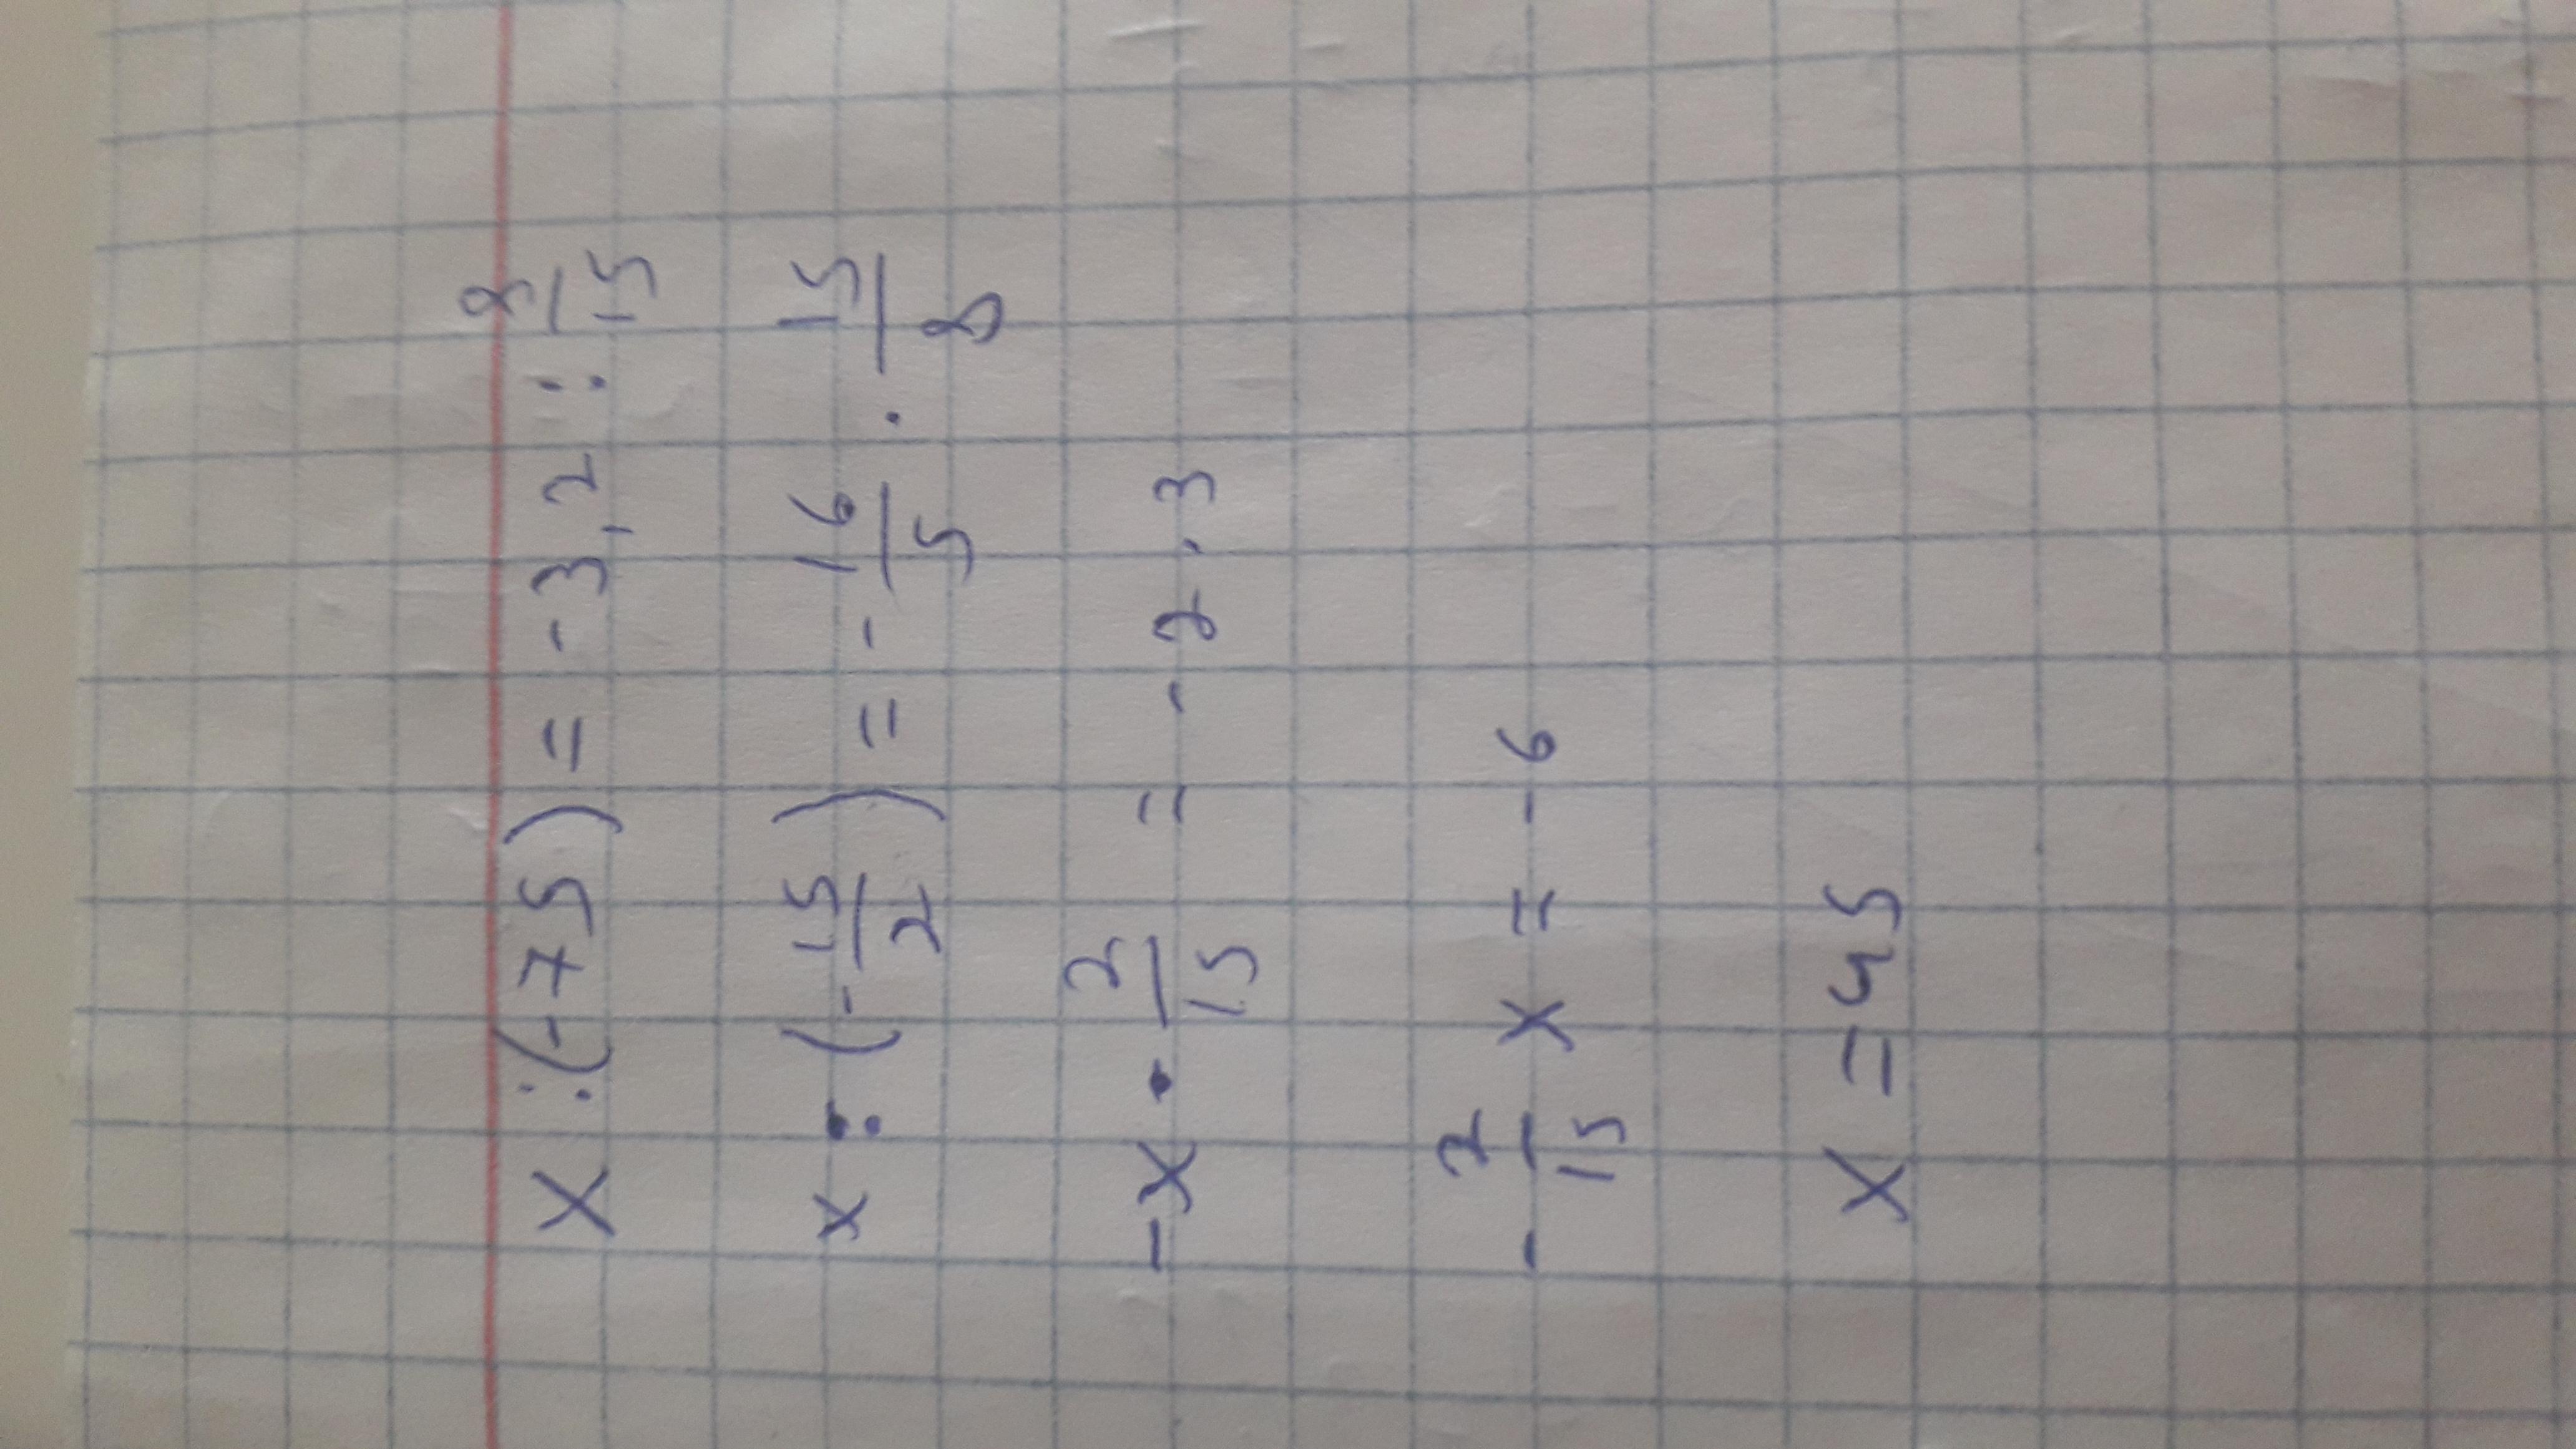 x : (-75) = -3,2 : 8/15
x : (-15/2) = -16/5 · 15/8
-x · 2/15 = -2·3
-2/15 x = -6
x = 45